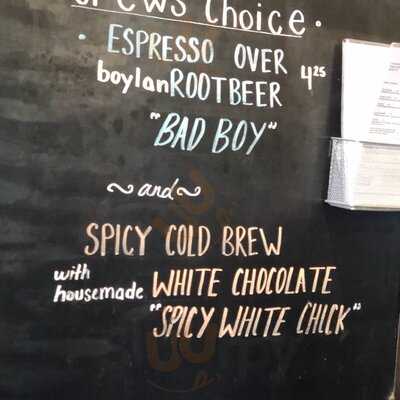 Choice.
· ESPRESSO OVER
boylan ROOTBEER 4.25
"BAD BOY"
~and~
SPICY COLD BREW
with
housemade WHITE CHOCOLATE
"SPICY WHITE CHICK"